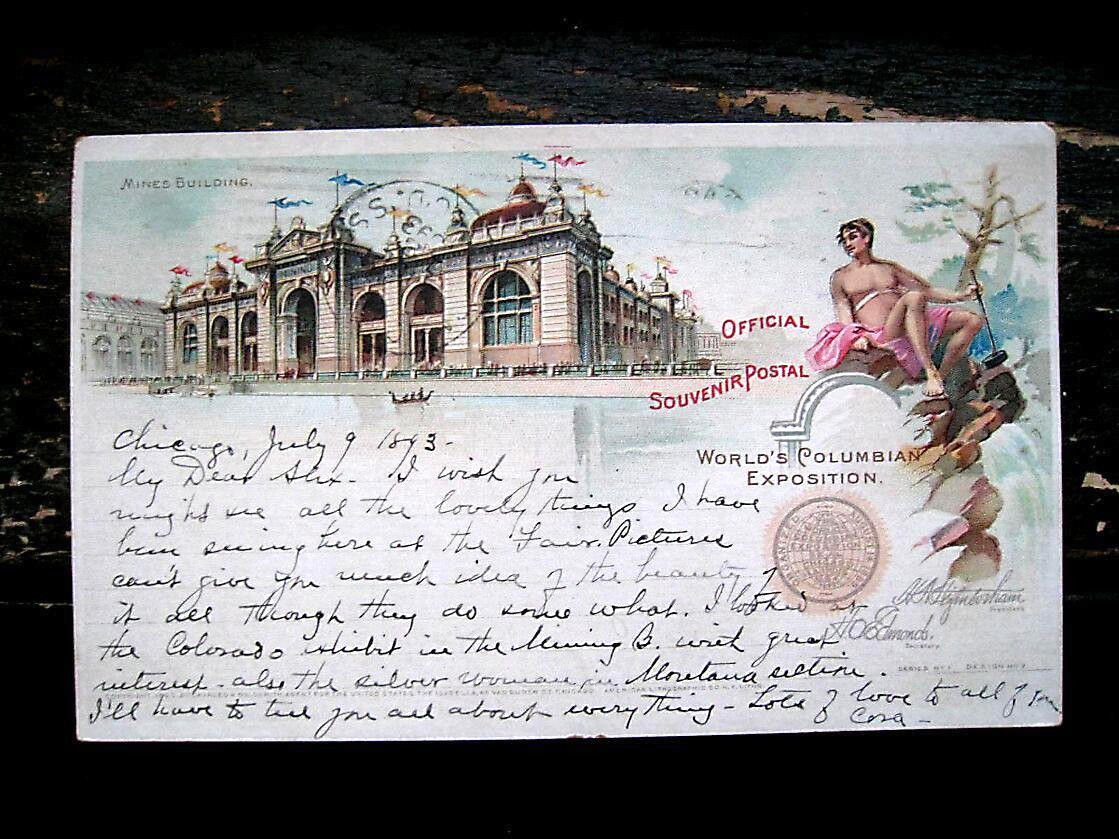 MINES BUILDING.
OFFICIAL
SOUVENIR POSTAL
WORLD'S COLUMBIAN
EXPOSITION.
Chicago, July 9 1893-
My Dear Alix. I wish you
might see all the lovely things I have
been seeing here at the Fair. Pictures
can't give you much idea of the beauty of
it all though they do some what. I looked at
the Colorado exhibit in the Mining B. with great
interest. also the silver woman in Montana section.
I'll have to tell you all about everything - Lots of love to all of you
Cora -
H.N. Higinbotham
PRESIDENT.
H.O. Edmonds.
SECRETARY.
SERIES No 1. DESIGN No
AMERICAN LITHOGRAPHIC CO. N.Y.